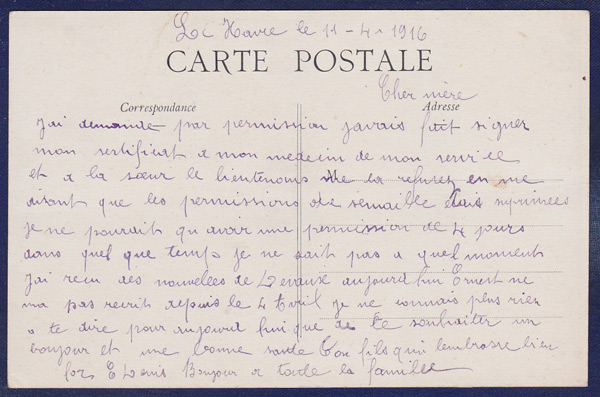 Le Havre le 11-4-1916
CARTE POSTALE
Cher mère
Correspondance
Adresse
J'ai demandé par permission javais fait signer
mon sertificat a mon medecin de mon service
et a la sœur le lieutenant me la refusez en me
disant que les permissions de semaille étais suprimées
je ne pourrait qu avoir une permission de 4 jours
dans quel que temps je ne sait pas a quel moment
J'ai recu des nouvelles de aujourd hui Ernest ne
ma pas recrit depuis le 4 Avril je ne connais plus rien
a te dire pour aujourd hui que de te souhaiter un
bonjour et une bonne santé Ton fils qui tembrasse bien
fors Bonjour a toute la famille